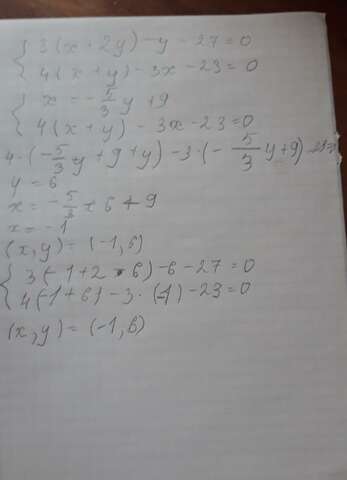 { 3(x + 2y) - y - 27 = 0
{ 4(x + y) - 3x - 23 = 0
{ x = - 5/3 y + 9
{ 4(x + y) - 3x - 23 = 0
4 · (- 5/3 y + 9 + y) - 3 · (- 5/3 y + 9) - 23 =
y = 6
x = - 5/3 × 6 + 9
x = - 1
(x, y) = (-1, 6)
{ 3(-1 + 2 · 6) - 6 - 27 = 0
{ 4(-1 + 6) - 3 · (-1) - 23 = 0
(x, y) = (-1, 6)